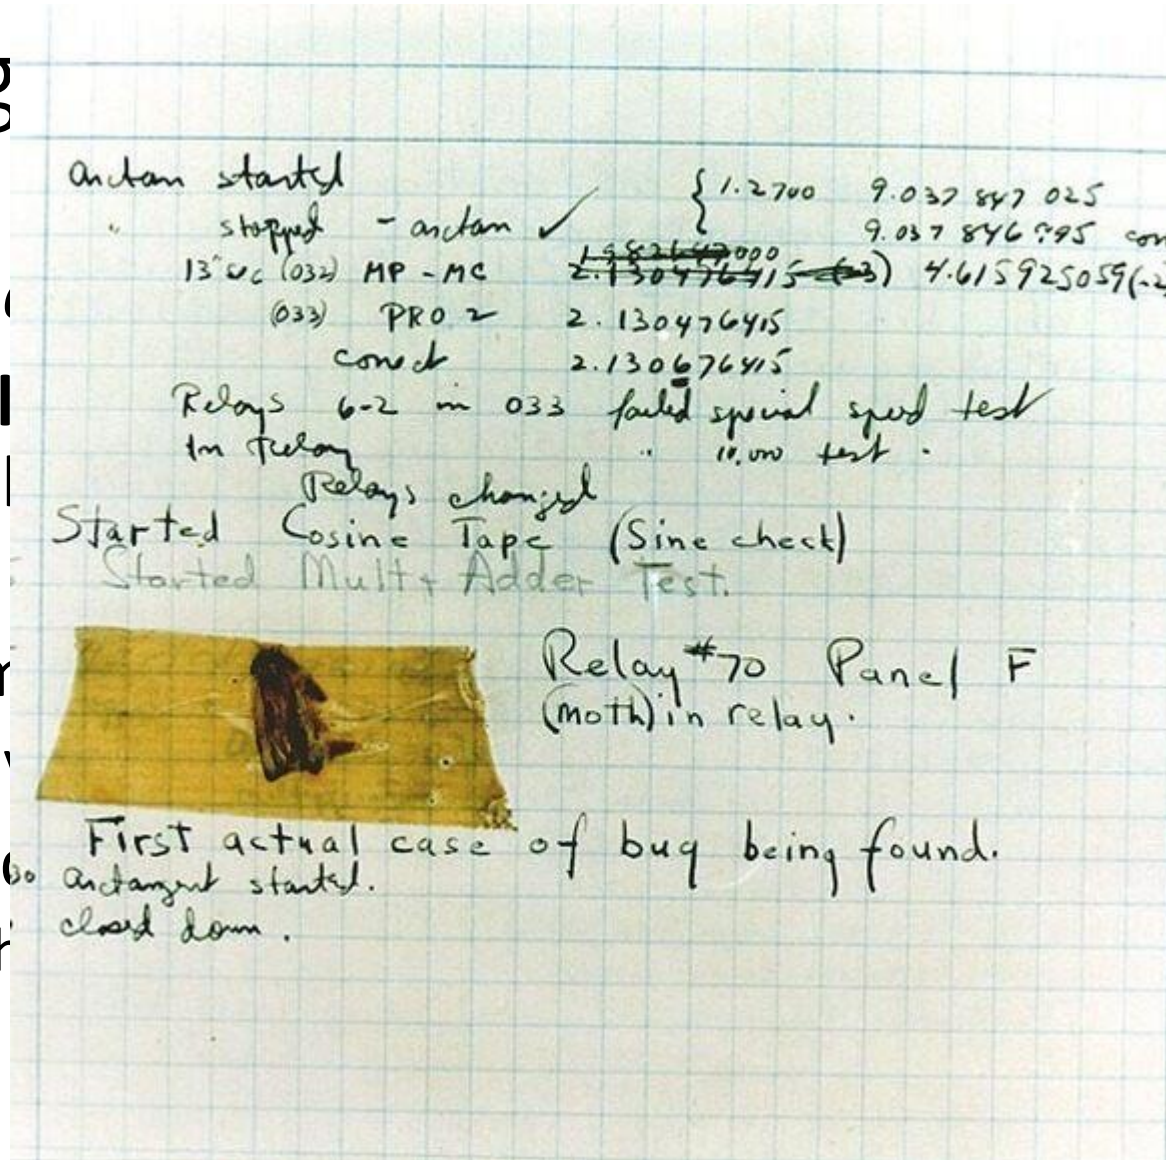 arctan started { 1.2700 9.037 847 025
" stopped - arctan ✓ 9.037 846 995 con
13" uc (032) MP - MC 2.130476415 (-3) 4.615925059(-2
(033) PRO 2 2.130476415
correct 2.130676415
Relays 6-2 in 033 failed special speed test
In Relay " 10,000 test .
Relays changed
Started Cosine Tape (Sine check)
Started Mult + Adder Test.
Relay #70 Panel F
(moth) in relay.
First actual case of bug being found.
arctangent started.
closed down .